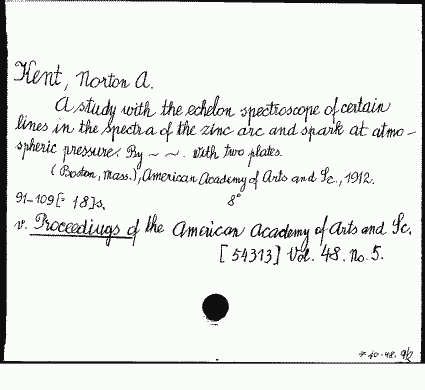 Kent, Norton A.
A study with the echelon spectroscope of certain
lines in the spectra of the zinc arc and spark at atmo-
spheric pressure. By ~ ~. with two plates.
(Boston, Mass.), American Academy of Arts and Sc., 1912.
91-109[= 18]s. 8°
v. Proceedings of the American Academy of Arts and Sc.
[54313] Vol. 48. No. 5.